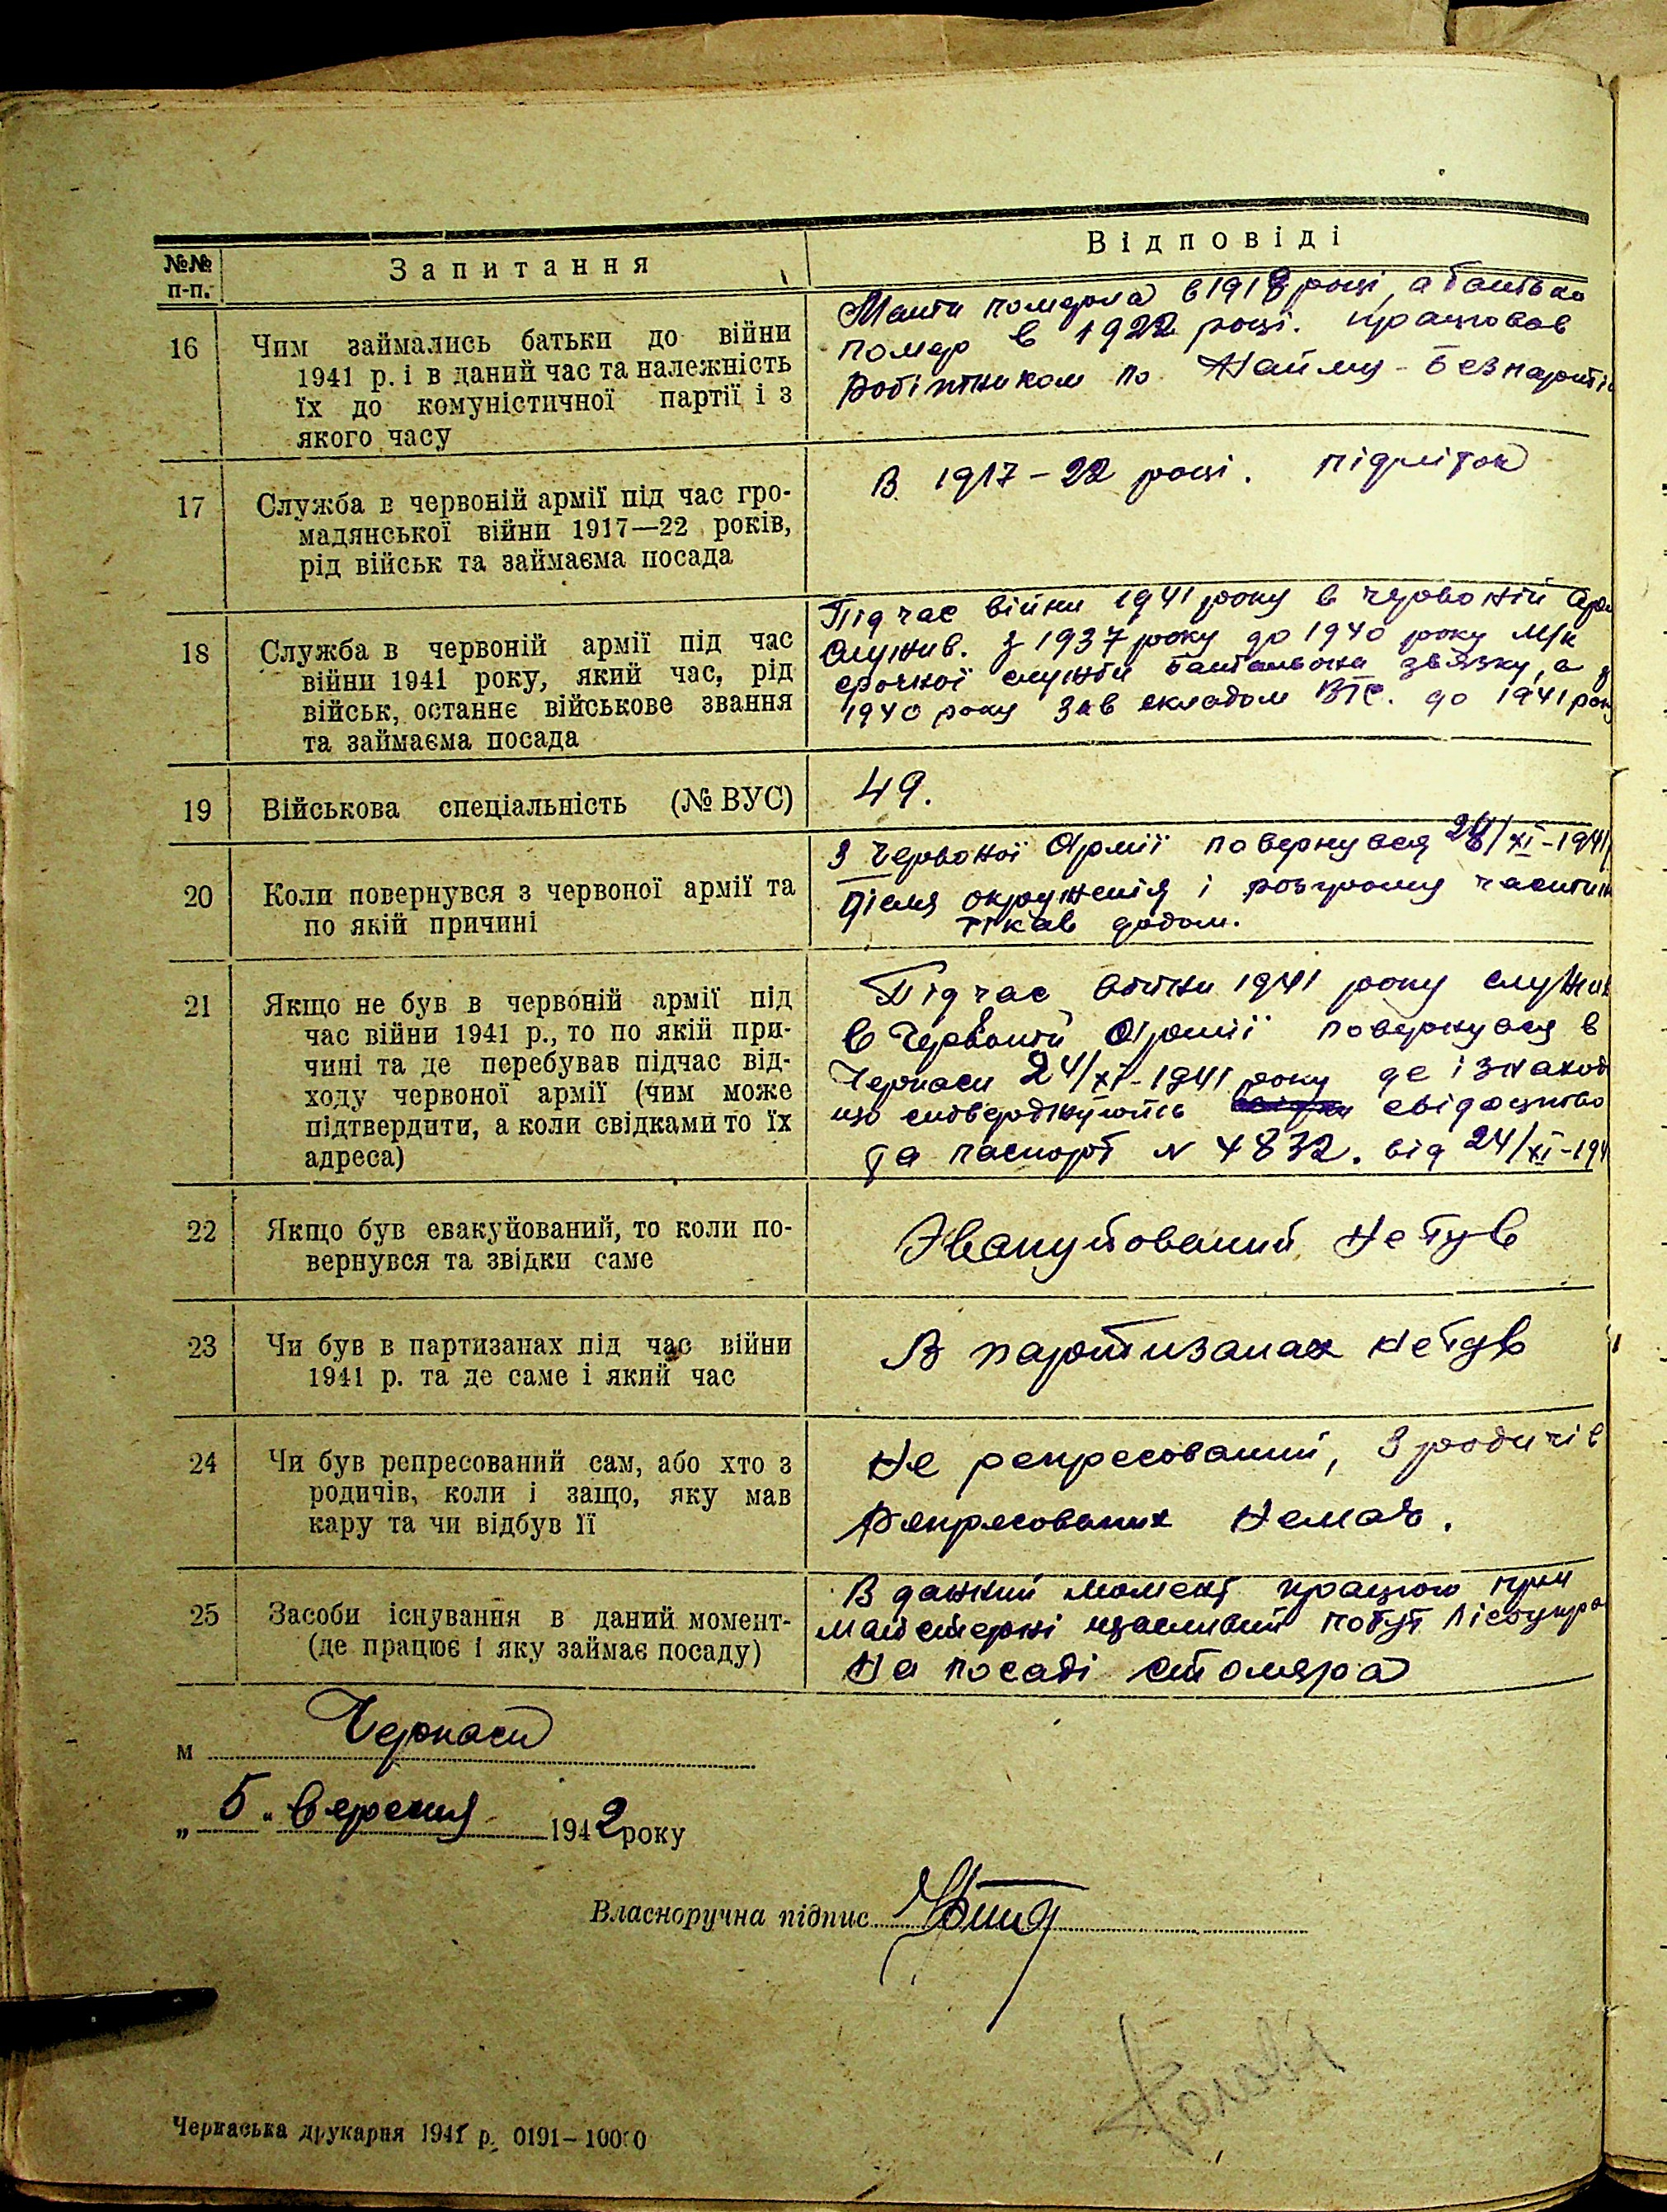 №№ п-п.
Запитання
Відповіді
16
Чим займались батьки до війни
1941 р. і в даний час та належність
їх до комуністичної партії і з
якого часу
Мати померла в 1918 році, а батько
помер в 1922 році. працював
робітником по Найму - Безпарті
17
Служба в червоній армії під час гро-
мадянської війни 1917—22 років,
рід військ та займаєма посада
В 1917 – 22 році. підліток
18
Служба в червоній армії під час
війни 1941 року, який час, рід
військ, останнє військове звання
та займаєма посада
Під час війни 1941 року в червоній
служив. З 1937 року до 1940 року М/к
срочної служби батальона звязку, а з
1940 року Зав складом ВТС. до 1941
19
Військова спеціальність (№ ВУС)
49.
20
Коли повернувся з червоної армії та
по якій причині
З Червоної Армії повернувся /XI-1941
Після окруженія і розгрому частин
тікав додом.
21
Якщо не був в червоній армії під
час війни 1941 р., то по якій при-
чині та де перебував підчас від-
ходу червоної армії (чим може
підтвердити, а коли свідками то їх
адреса)
Під час війни 1941 року служив
в Червоній Армії повернувся в
Черкаси 24/XI-1941 року де і знаход
що свідоцтво
та паспорт N 4832. від 24/XI-194
22
Якщо був евакуйований, то коли по-
вернувся та звідки саме
Эвакуйований не був
23
Чи був в партизанах під час війни
1941 р. та де саме і який час
В партизанах не був
24
Чи був репресований сам, або хто з
родичів, коли і защо, яку мав
кару та чи відбув її
Не репресований, З родичів
репресованих Немає.
25
Засоби існування в даний момент-
(де працює і яку займає посаду)
В данний момент працюю при
майстерні щасливий побут
На посаді столяра
м Черкаси
„ 5 " вересня 1942 року
Власноручна підпис
Черкаська друкарня 1941 р. 0191—10000